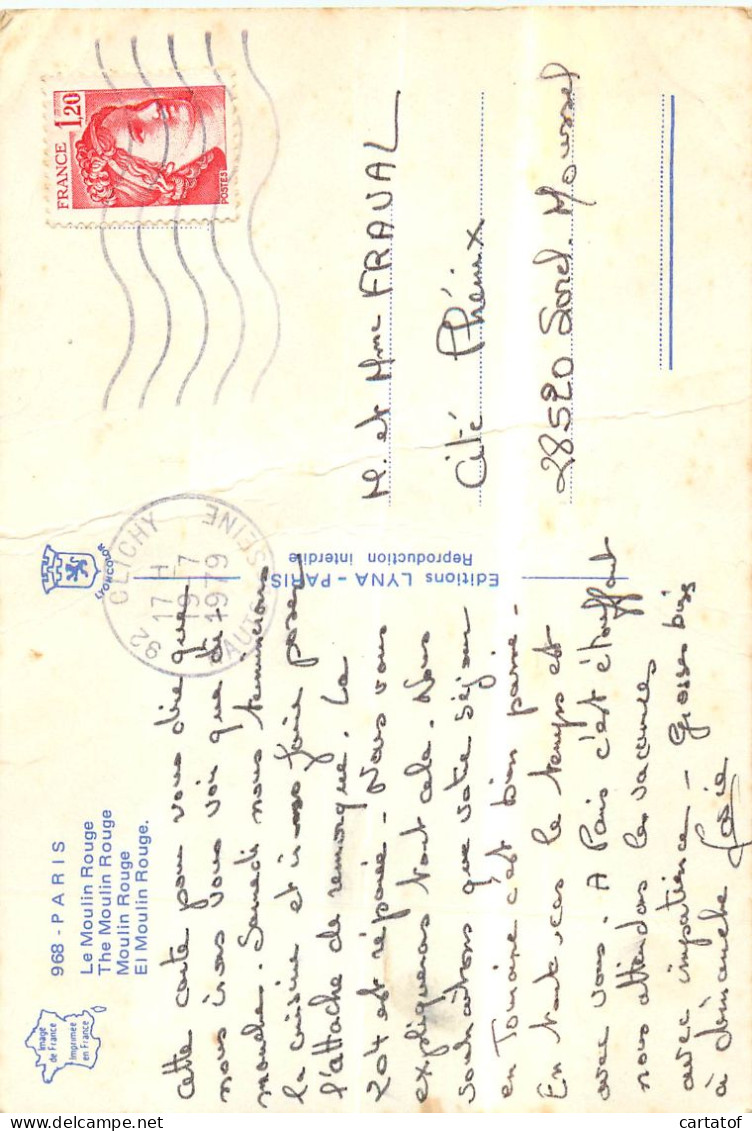 Image
de France
Imprimée
en France
968 - PARIS
Le Moulin Rouge
The Moulin Rouge
Moulin Rouge
El Moulin Rouge.
LYONCOLOR
Cette carte pour vous dire que
nous irons vous voir que di-
manche. Samedi nous terminerons
la cuisine et irons faire poser
l'attache de remorque. La
204 est réparée - Nous vous
expliquerons tout cela. Nous
souhaitons que votre séjour
en Touraine c'est bien passé -
En tout cas le temps est
avec vous. A Paris c'est étouffant
nous attendons les vacances
avec impatience - Grosses bises
à dimanche
Editions LYNA - PARIS
Reproduction interdite
92 CLICHY
17 H
19 - 7
1979
HAUTS DE SEINE
FRANCE
1,20
POSTES
M. et Mme FRAVAL
Cité Phénix
28520 Sorel. Moussel
cartatof